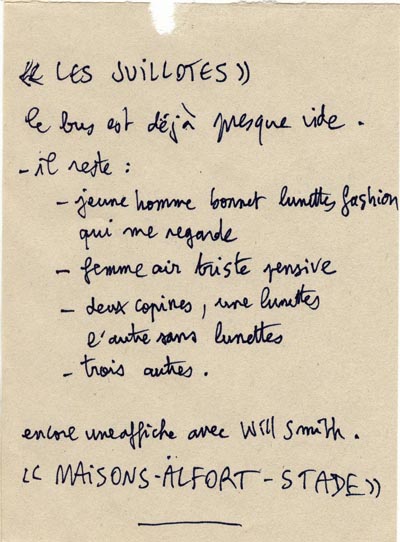 « LES JUILLOTES »
le bus est déjà presque vide.
- il reste :
- jeune homme bonnet lunettes fashion
qui me regarde
- femme air triste pensive
- deux copines, une lunettes
l'autre sans lunettes
- trois autres.
encore une affiche avec Will Smith.
« MAISONS-ALFORT - STADE »